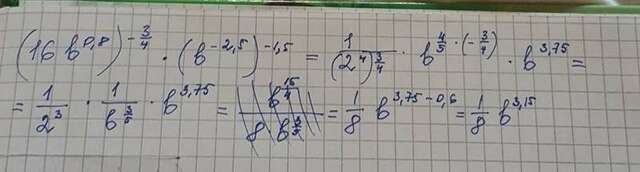 (16 b^0,8)^-3/4 · (b^-2,5)^-1,5 = 1/(2^4)^3/4 · b^4/5 · (-3/4) · b^3,75 =
= 1/2^3 · 1/b^3/5 · b^3,75 = b^15/4 / 8 b^3/5 = 1/8 b^3,75-0,6 = 1/8 b^3,15